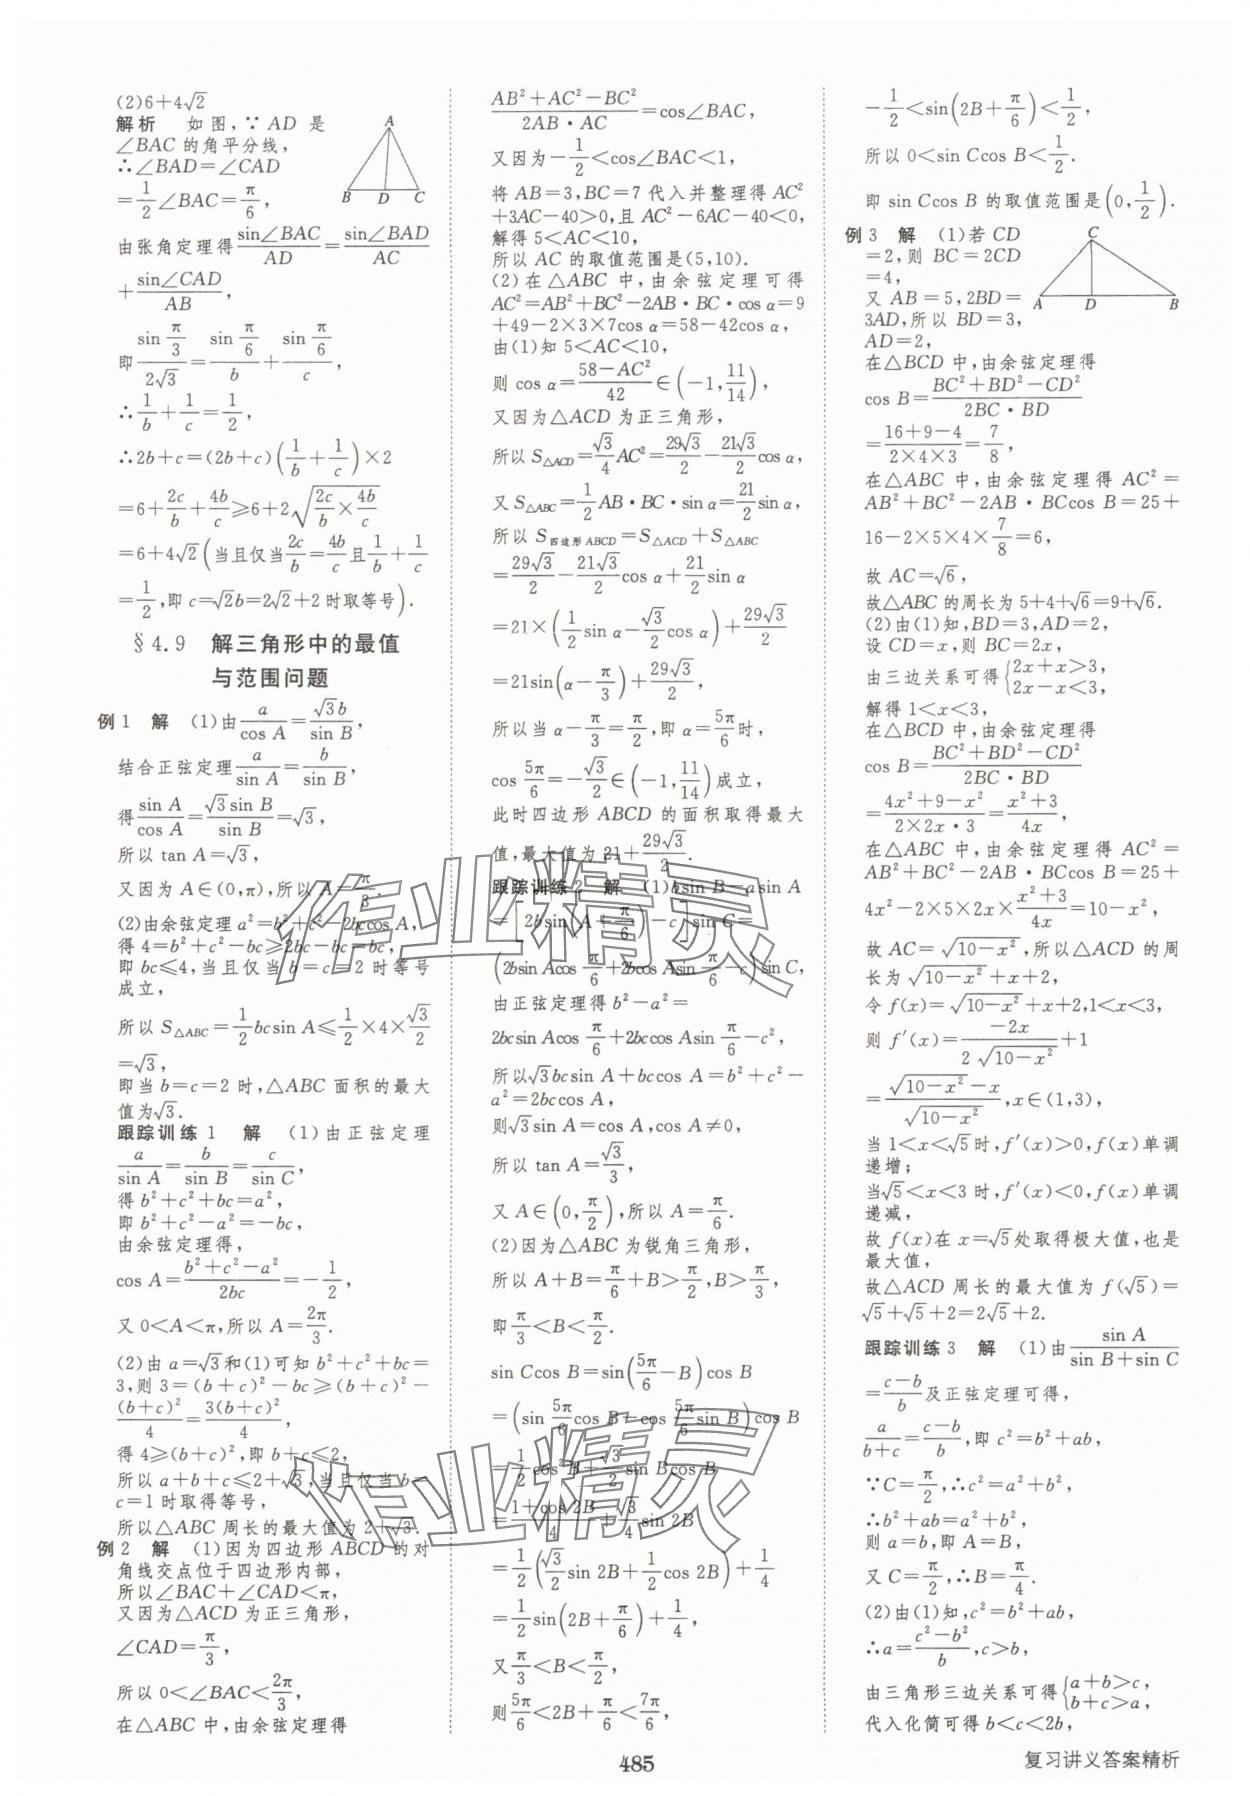 (2)6+4√2
解析 如图,∵AD 是
∠BAC的角平分线,
∴∠BAD=∠CAD
=1/2∠BAC=π/6,
A
B D C
由张角定理得 sin∠BAC/AD=sin∠BAD/AC
+sin∠CAD/AB,
即 sin π/3/2√3=sin π/6/b+sin π/6/c,
∴1/b+1/c=1/2,
∴2b+c=(2b+c)(1/b+1/c)×2
=6+2c/b+4b/c≥6+2√(2c/b×4b/c)
=6+4√2(当且仅当2c/b=4b/c且1/b+1/c
=1/2,即c=√2b=2√2+2时取等号).
§4.9 解三角形中的最值
与范围问题
例1 解 (1)由a/cos A=√3b/sin B,
结合正弦定理a/sin A=b/sin B,
得sin A/cos A=√3sin B/sin B=√3,
所以 tan A=√3,
又因为A∈(0,π),所以A=π/3.
(2)由余弦定理a²=b²+c²-2bccos A,
得4=b²+c²-bc≥2bc-bc=bc,
即bc≤4,当且仅当b=c=2时等号
成立,
所以S△ABC=1/2bcsin A≤1/2×4×√3/2
=√3,
即当b=c=2时,△ABC面积的最大
值为√3.
跟踪训练1 解 (1)由正弦定理
a/sin A=b/sin B=c/sin C,
得b²+c²+bc=a²,
即b²+c²-a²=-bc,
由余弦定理得,
cos A=(b²+c²-a²)/2bc=-1/2,
又0<A<π,所以A=2π/3.
(2)由a=√3和(1)可知b²+c²+bc=
3,则3=(b+c)²-bc≥(b+c)²-
(b+c)²/4=3(b+c)²/4,
得4≥(b+c)²,即b+c≤2,
所以a+b+c≤2+√3,当且仅当b=
c=1时取得等号,
所以△ABC周长的最大值为2+√3.
例2 解 (1)因为四边形ABCD的对
角线交点位于四边形内部,
所以∠BAC+∠CAD<π,
又因为△ACD为正三角形,
∠CAD=π/3,
所以0<∠BAC<2π/3,
在△ABC中,由余弦定理得
(AB²+AC²-BC²)/(2AB·AC)=cos∠BAC,
又因为-1/2<cos∠BAC<1,
将AB=3,BC=7代入并整理得AC²
+3AC-40>0,且AC²-6AC-40<0,
解得5<AC<10,
所以AC的取值范围是(5,10).
(2)在△ABC中,由余弦定理可得
AC²=AB²+BC²-2AB·BC·cos α=9
+49-2×3×7cos α=58-42cos α,
由(1)知5<AC<10,
则cos α=(58-AC²)/42∈(-1,11/14),
又因为△ACD为正三角形,
所以S△ACD=√3/4AC²=29√3/2-21√3/2cos α,
又S△ABC=1/2AB·BC·sin α=21/2sin α,
所以S四边形ABCD=S△ACD+S△ABC
=29√3/2-21√3/2cos α+21/2sin α
=21×(1/2sin α-√3/2cos α)+29√3/2
=21sin(α-π/3)+29√3/2,
所以当α-π/3=π/2,即α=5π/6时,
cos 5π/6=-√3/2∈(-1,11/14)成立,
此时四边形ABCD的面积取得最大
值,最大值为21+29√3/2.
跟踪训练2 解 (1)bsin B-asin A
=[2bsin(A+π/6)-c]sin C=
(2bsin Acos π/6+2bcos Asin π/6-c)sin C,
由正弦定理得b²-a²=
2bcsin Acos π/6+2bccos Asin π/6-c²,
所以√3bcsin A+bccos A=b²+c²-
a²=2bccos A,
则√3sin A=cos A,cos A≠0,
所以tan A=√3/3,
又A∈(0,π/2),所以A=π/6.
(2)因为△ABC为锐角三角形,
所以A+B=π/6+B>π/2,B>π/3,
即π/3<B<π/2.
sin Ccos B=sin(5π/6-B)cos B
=(sin 5π/6cos B-cos 5π/6sin B)cos B
=1/2cos²B+√3/2sin Bcos B
=(1+cos 2B)/4+√3/4sin 2B
=1/2(√3/2sin 2B+1/2cos 2B)+1/4
=1/2sin(2B+π/6)+1/4,
又π/3<B<π/2,
则5π/6<2B+π/6<7π/6,
-1/2<sin(2B+π/6)<1/2,
所以0<sin Ccos B<1/2.
即sin Ccos B的取值范围是(0,1/2).
例3 解 (1)若CD
=2,则BC=2CD
=4,
又AB=5,2BD=
3AD,所以BD=3,
AD=2,
C
A D B
在△BCD中,由余弦定理得
cos B=(BC²+BD²-CD²)/(2BC·BD)
=(16+9-4)/(2×4×3)=7/8,
在△ABC中,由余弦定理得AC²=
AB²+BC²-2AB·BCcos B=25+
16-2×5×4×7/8=6,
故AC=√6,
故△ABC的周长为5+4+√6=9+√6.
(2)由(1)知,BD=3,AD=2,
设CD=x,则BC=2x,
由三边关系可得{2x+x>3,
2x-x<3,
解得1<x<3,
在△BCD中,由余弦定理得
cos B=(BC²+BD²-CD²)/(2BC·BD)
=(4x²+9-x²)/(2×2x·3)=(x²+3)/4x,
在△ABC中,由余弦定理得AC²=
AB²+BC²-2AB·BCcos B=25+
4x²-2×5×2x×(x²+3)/4x=10-x²,
故AC=√(10-x²),所以△ACD的周
长为√(10-x²)+x+2,
令f(x)=√(10-x²)+x+2,1<x<3,
则f′(x)=-2x/(2√(10-x²))+1
=(√(10-x²)-x)/√(10-x²),x∈(1,3),
当1<x<√5时,f′(x)>0,f(x)单调
递增;
当√5<x<3时,f′(x)<0,f(x)单调
递减,
故f(x)在x=√5处取得极大值,也是
最大值,
故△ACD周长的最大值为f(√5)=
√5+√5+2=2√5+2.
跟踪训练3 解 (1)由sin A/(sin B+sin C)
=(c-b)/b及正弦定理可得,
a/(b+c)=(c-b)/b,即c²=b²+ab,
∵C=π/2,∴c²=a²+b²,
∴b²+ab=a²+b²,
则a=b,即A=B,
又C=π/2,∴B=π/4.
(2)由(1)知,c²=b²+ab,
∴a=(c²-b²)/b,c>b,
由三角形三边关系可得{a+b>c,
b+c>a,
代入化简可得b<c<2b,
485
复习讲义答案精析
作业精灵
作业精灵